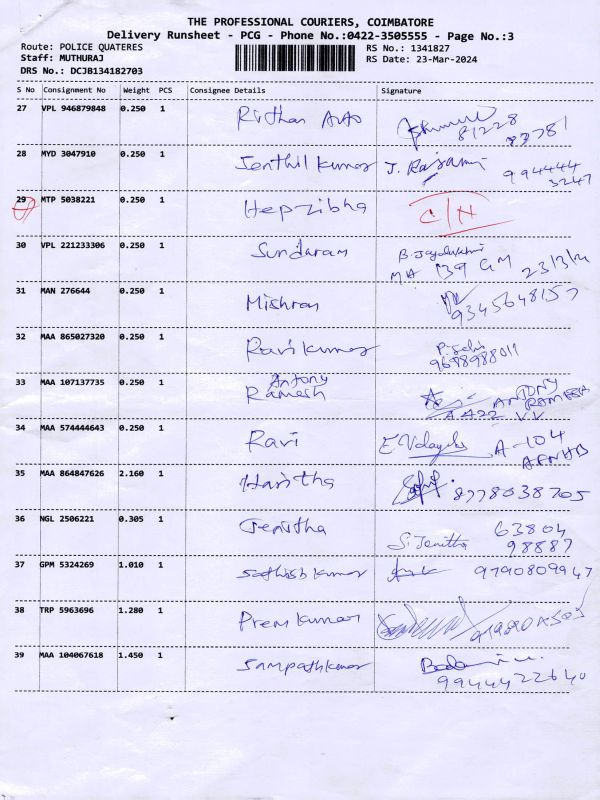 THE PROFESSIONAL COURIERS, COIMBATORE
Delivery Runsheet - PCG - Phone No.:0422-3505555 - Page No.:3
Route: POLICE QUATERES RS No.: 1341827
Staff: MUTHURAJ RS Date: 23-Mar-2024
DRS No.: DCJB134182703
S No Consignment No Weight PCS Consignee Details Signature
27 VPL 946879848 0.250 1 Rithan Auto
81228
83781
28 MYD 3047910 0.250 1 Senthil kumar J. Rajamni 994444
3247
29 MTP 5038221 0.250 1 Hepzibha C/H
30 VPL 221233306 0.250 1 Sundaram B. Jayalakshmi
MA 139 GM 23/3/24
31 MAN 276644 0.250 1 Mishran
9345648157
32 MAA 865027320 0.250 1 Ravikumar
9688988011
33 MAA 107137735 0.250 1 Antony
Ramesh ANTONY
RAMESH
A422 VV
34 MAA 574444643 0.250 1 Ravi A-104
35 MAA 864847626 2.160 1 Haritha 8778038705
36 NGL 2506221 0.305 1 Jenitha 63804
S. Jenitha 98887
37 GPM 5324269 1.010 1 Sathish kumar 9790809947
38 TRP 5963696 1.280 1 Prem kumar
39 MAA 104067618 1.450 1 Sampathkumar
9944422640